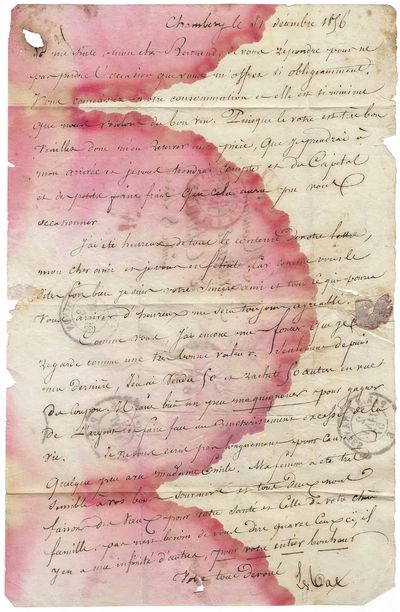 Chambéry le 31 décembre 1856
Je me hâte, mon cher Bertrand, de vous répondre pour ne
pas perdre l'occasion que vous m'offrez si obligeamment.
Vous connaissez notre consommation et elle est si minime
que nous voulons du bon vin. Puisque le votre est très bon
veuillez donc m'en réserver une pièce, que je prendrai à
mon arrivée et je vous tiendrai compte et du Capital
et des petits faux frais que cela aura pu vous
occasionner
J'ai été heureux de tout le contenu de votre lettre,
mon cher ami et je vous en félicite, car comme vous le
dites fort bien je suis votre sincère ami et tout ce que pourra
vous arriver d'heureux me sera toujours agréable.
Comme vous, j'ai encore me que je
regarde comme une très bonne valeur. Seulement depuis
ma dernière, j'en ai vendu 50 et racheté 50 autres en vue
du coupon. Il faut bien un peu maquignonner pour gagner
de l'argent et faire face au renchérissement excessif de la
vie. Je
quelque peu Madame Emile. Ma femme a été très
sensible à vos bons souvenirs et tous deux nous
faisons des vœux pour votre santé et celle de votre chère
famille. pas n'est besoin de vous dire que ceux ci, il
y en a une infinité d'autres, pour votre entier bonheur
Votre tout dévoué